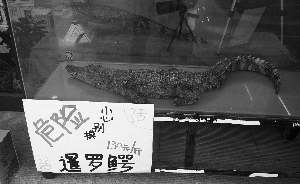 危险
小心
别摸
130元/斤
暹罗鳄